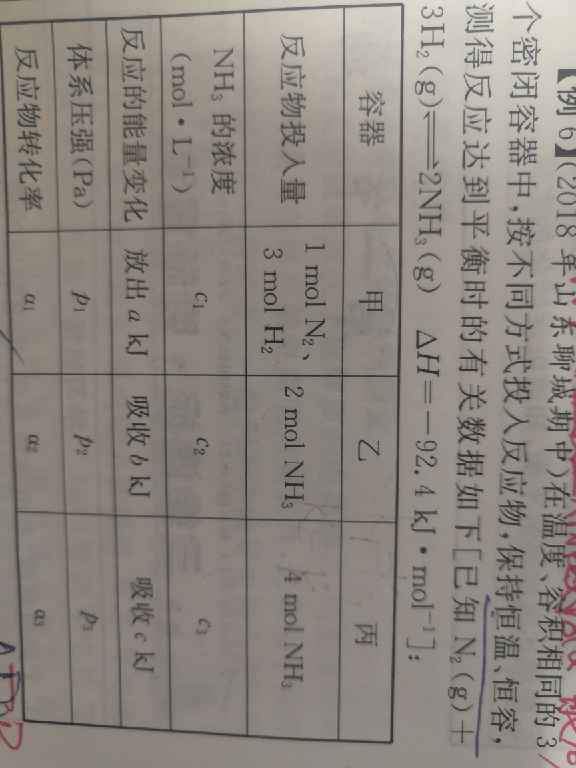 【例6】(2018年山东聊城期中)在温度、容积相同的3
个密闭容器中,按不同方式投入反应物,保持恒温、恒容,
测得反应达到平衡时的有关数据如下[已知 N₂(g)+
3H₂(g)⇌2NH₃(g) ΔH=-92.4 kJ·mol⁻¹]:
容器 甲 乙 丙
反应物投入量 1 mol N₂、3 mol H₂ 2 mol NH₃ 4 mol NH₃
NH₃ 的浓度(mol·L⁻¹) c₁ c₂ c₃
反应的能量变化 放出 a kJ 吸收 b kJ 吸收 c kJ
体系压强(Pa) p₁ p₂ p₃
反应物转化率 α₁ α₂ α₃